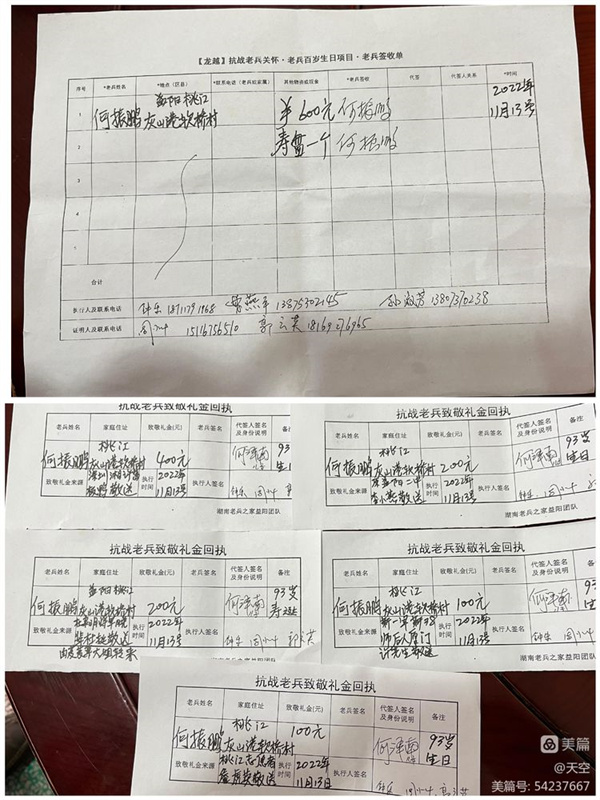 【龙越】抗战老兵关怀·老兵百岁生日项目·老兵签收单
序号 *老兵姓名 *地点（区县） *联系电话（老兵或家属） 其他物资或现金 *老兵签收 代签 代签人关系 *时间
1 何振鹏 益阳桃江 灰山港软桥村 ¥600元 何振鹏 2022年11月13号
2 寿盘一个 何振鹏
3
4
5
合计
执行人及联系电话 钟乐 曾燕平 13875302145 13807370238
证明人及联系电话 周小叶 15116756510 郭云英 18169276965
抗战老兵致敬礼金回执
老兵姓名 家庭住址 致敬礼金(元) 老兵签名 代签人签名及身份说明 备注
何振鹏 桃江灰山港软桥村 400元 何泽南 93岁生日
致敬礼金来源 敬送 执行时间 2022年11月13号 执行人签名 钟乐 周小叶
抗战老兵致敬礼金回执
老兵姓名 家庭住址 致敬礼金(元) 老兵签名 代签人签名及身份说明 备注
何振鹏 桃江灰山港软桥村 200元 何泽南 93岁生日
致敬礼金来源 敬送 执行时间 2022年11月13号 执行人签名 钟乐 周小叶
湖南老兵之家益阳团队
抗战老兵致敬礼金回执
老兵姓名 家庭住址 致敬礼金(元) 老兵签名 代签人签名及身份说明 备注
何振鹏 益阳桃江灰山港软桥村 200元 何泽南 93岁
致敬礼金来源 敬送 执行时间 2022年11月13号 执行人签名 钟乐 周小叶 郭云英
湖南老兵之家益阳团队
抗战老兵致敬礼金回执
老兵姓名 家庭住址 致敬礼金(元) 老兵签名 代签人签名及身份说明 备注
何振鹏 桃江灰山港软桥村 100元 何泽南 93岁生日
致敬礼金来源 敬送 执行时间 2022年11月13号 执行人签名 钟乐 周小叶
湖南老兵之家益阳团队
抗战老兵致敬礼金回执
老兵姓名 家庭住址 致敬礼金(元) 老兵签名 代签人签名及身份说明 备注
何振鹏 桃江灰山港软桥村 100元 何泽南 93岁生日
致敬礼金来源 桃江志愿者 敬送 执行时间 2022年11月13日 执行人签名 钟乐 周小叶
美篇
@天空
美篇号: 54237667